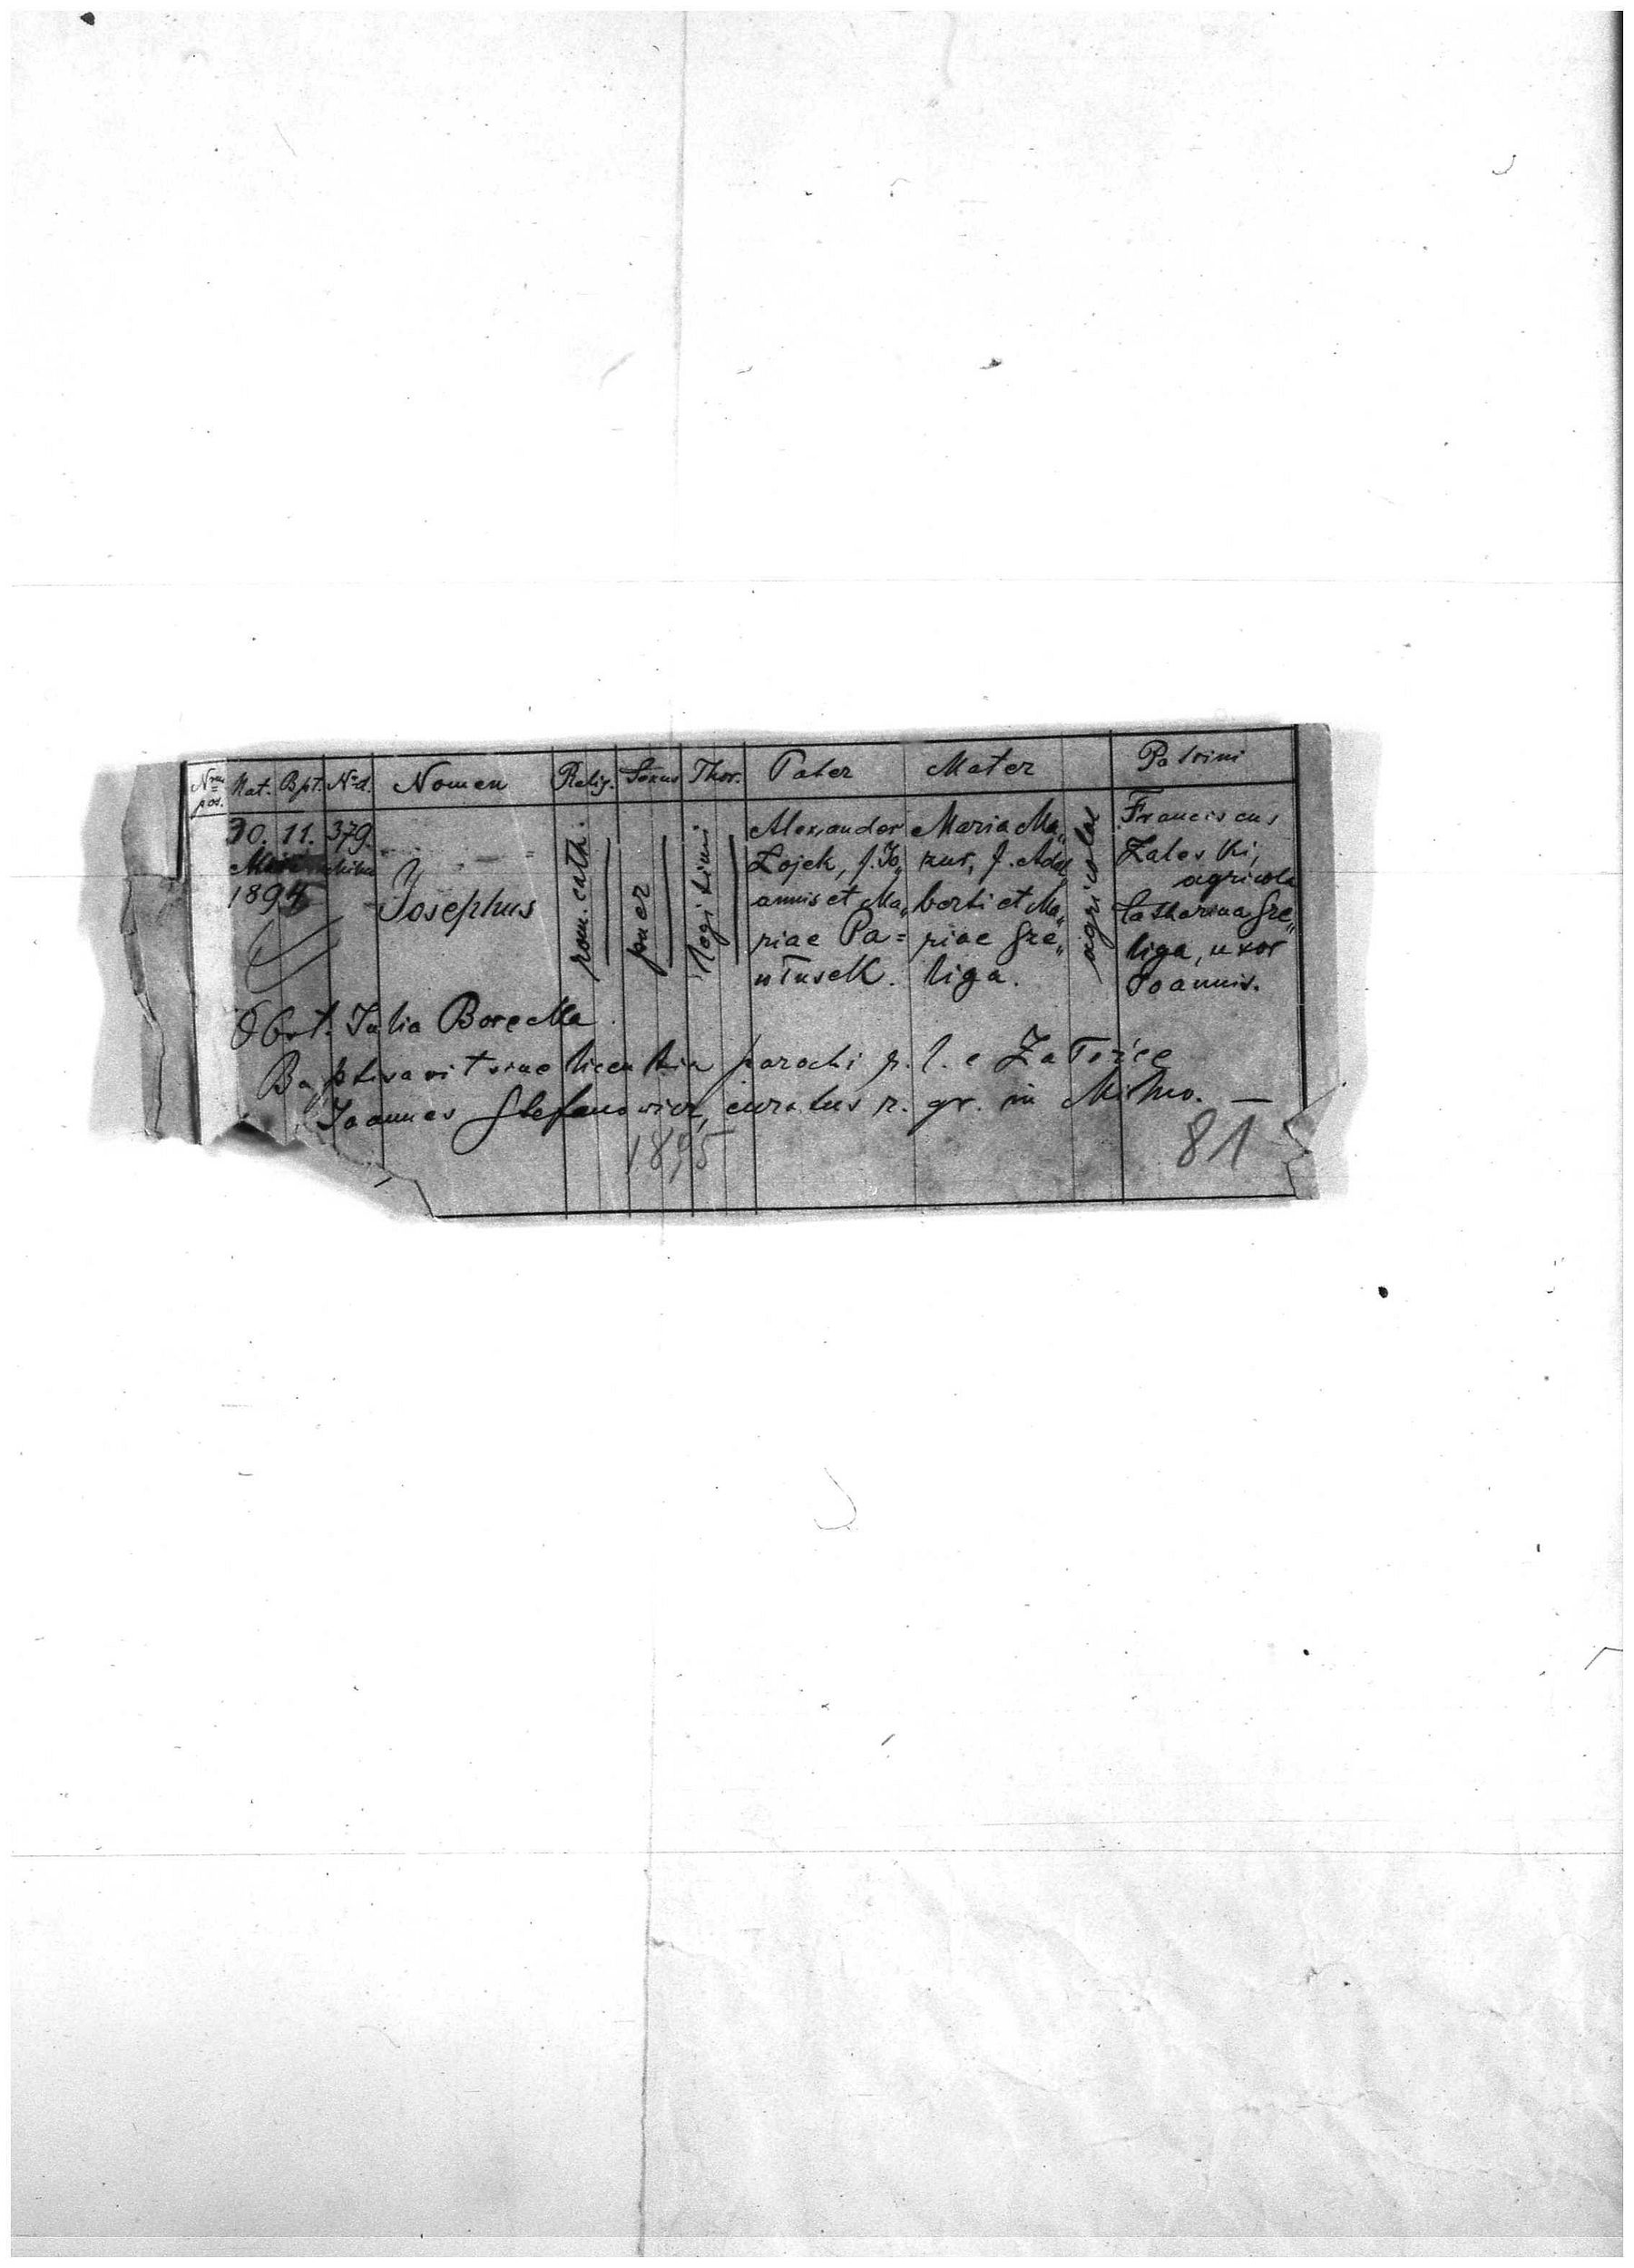 Nrus pos. Nat. Bpt. N-d. Nomen Relig. Sexus Thor. Pater Mater Patrini
30. 11. 379.
1895
Josephus
rom. cath.
puer
legitimi
Alexander
Łojek, f. Jo„
annis et Ma„
riae Pa=
włusek.
Maria Ma„
zur, f. Adal„
berti et Ma„
riae Grze„
liga.
agricolae
Franciscus
Zaleski,
agricola
Catharina Grze„
liga, uxor
Joannis.
Obst. Julia Borecka.
Baptisavit sine licentia parochi r. l. e Załoźce
Joannes Stefanowicz, curatus r. gr. in Milno. —
1895
81